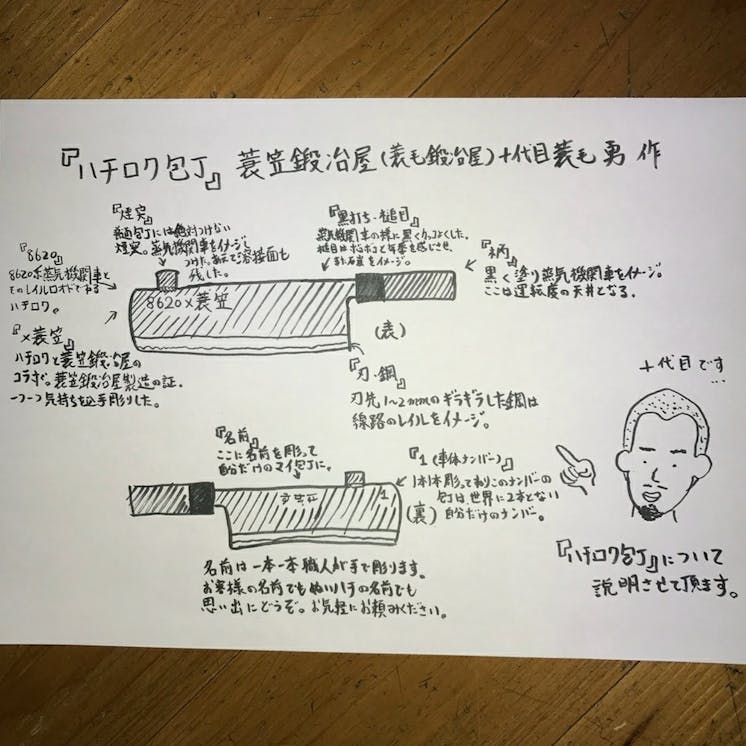 『ハチロク包丁』 蓑笠鍛冶屋(蓑毛鍛冶屋)十代目蓑毛 勇 作
『煙突』
普通包丁には絶対つけない
煙突。蒸気機関車をイメージして
つけた。あえて溶接面も
残した。
『黒打ち・槌目』
蒸気機関車の様に黒くカッコよくした。
槌目はボコボコと年季を感じさせ、
また石炭をイメージ。
『柄』
黒く塗り蒸気機関車をイメージ。
ここは運転席の天井となる。
『8620』
8620系蒸気機関車と
そのレイルロオドである
ハチロク。
『×蓑笠』
ハチロクと蓑笠鍛冶屋の
コラボ。蓑笠鍛冶屋製造の証。
一つ一つ気持ちを込め手彫りした。
8620×蓑笠
(表)
『刃・鋼』
刃先1~2mmのギラギラした鋼は
線路のレイルをイメージ。
十代目です
…
『名前』
ここに名前を彫って
自分だけのマイ包丁に。
『1(車体ナンバー)』
1本1本彫っておりこのナンバーの
包丁は世界に2本とない
自分だけのナンバー。
1
(裏)
名前は一本一本職人が手で彫ります。
お客様の名前でもぬいハチの名前でも
思い出にどうぞ。お気軽にお頼みください。
『ハチロク包丁』について
説明させて頂ます。